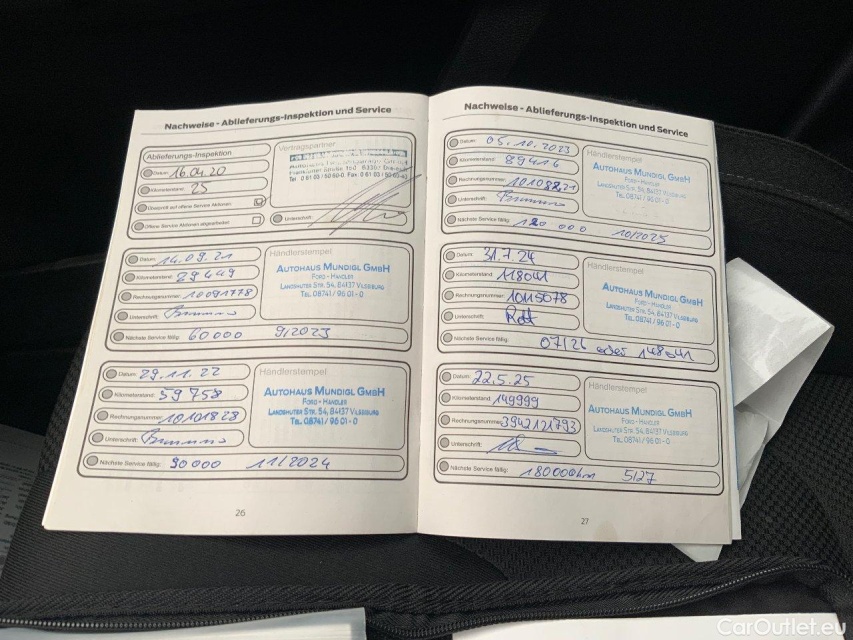 Nachweise - Ablieferungs-Inspektion und Service
Ablieferungs-Inspektion
Datum: 16.04.20
Kilometerstand: 25
Überprüft auf offene Service Aktionen
Offene Service Aktionen abgearbeitet
Vertragspartner
Unterschrift:
Datum: 14.09.21
Kilometerstand: 29449
Rechnungsnummer: 10091778
Unterschrift:
Nächste Service fällig: 60000 9/2023
Händlerstempel
AUTOHAUS MUNDIGL GMBH
FORD - HÄNDLER
LANDSHUTER STR. 54, 84137 VILSBIBURG
TEL. 08741 / 96 01 - 0
Datum: 29.11.22
Kilometerstand: 59758
Rechnungsnummer: 10101828
Unterschrift:
Nächste Service fällig: 90000 11/2024
Händlerstempel
AUTOHAUS MUNDIGL GMBH
FORD - HÄNDLER
LANDSHUTER STR. 54, 84137 VILSBIBURG
TEL. 08741 / 96 01 - 0
26
Nachweise - Ablieferungs-Inspektion und Service
Datum: 05.10.2023
Kilometerstand: 89416
Rechnungsnummer: 10108821
Unterschrift:
Nächste Service fällig: 120 000 10/2025
Händlerstempel
AUTOHAUS MUNDIGL GMBH
FORD - HÄNDLER
LANDSHUTER STR. 54, 84137 VILSBIBURG
TEL. 08741 / 96 01 - 0
Datum: 31.7.24
Kilometerstand: 118041
Rechnungsnummer: 10115078
Unterschrift:
Nächste Service fällig: 07/26 oder 148041
Händlerstempel
AUTOHAUS MUNDIGL GMBH
FORD - HÄNDLER
LANDSHUTER STR. 54, 84137 VILSBIBURG
TEL. 08741 / 96 01 - 0
Datum: 22.5.25
Kilometerstand: 149999
Rechnungsnummer: 3942121793
Unterschrift:
Nächste Service fällig: 180000km 5/27
Händlerstempel
AUTOHAUS MUNDIGL GMBH
FORD - HÄNDLER
LANDSHUTER STR. 54, 84137 VILSBIBURG
TEL. 08741 / 96 01 - 0
27
CarOutlet.eu